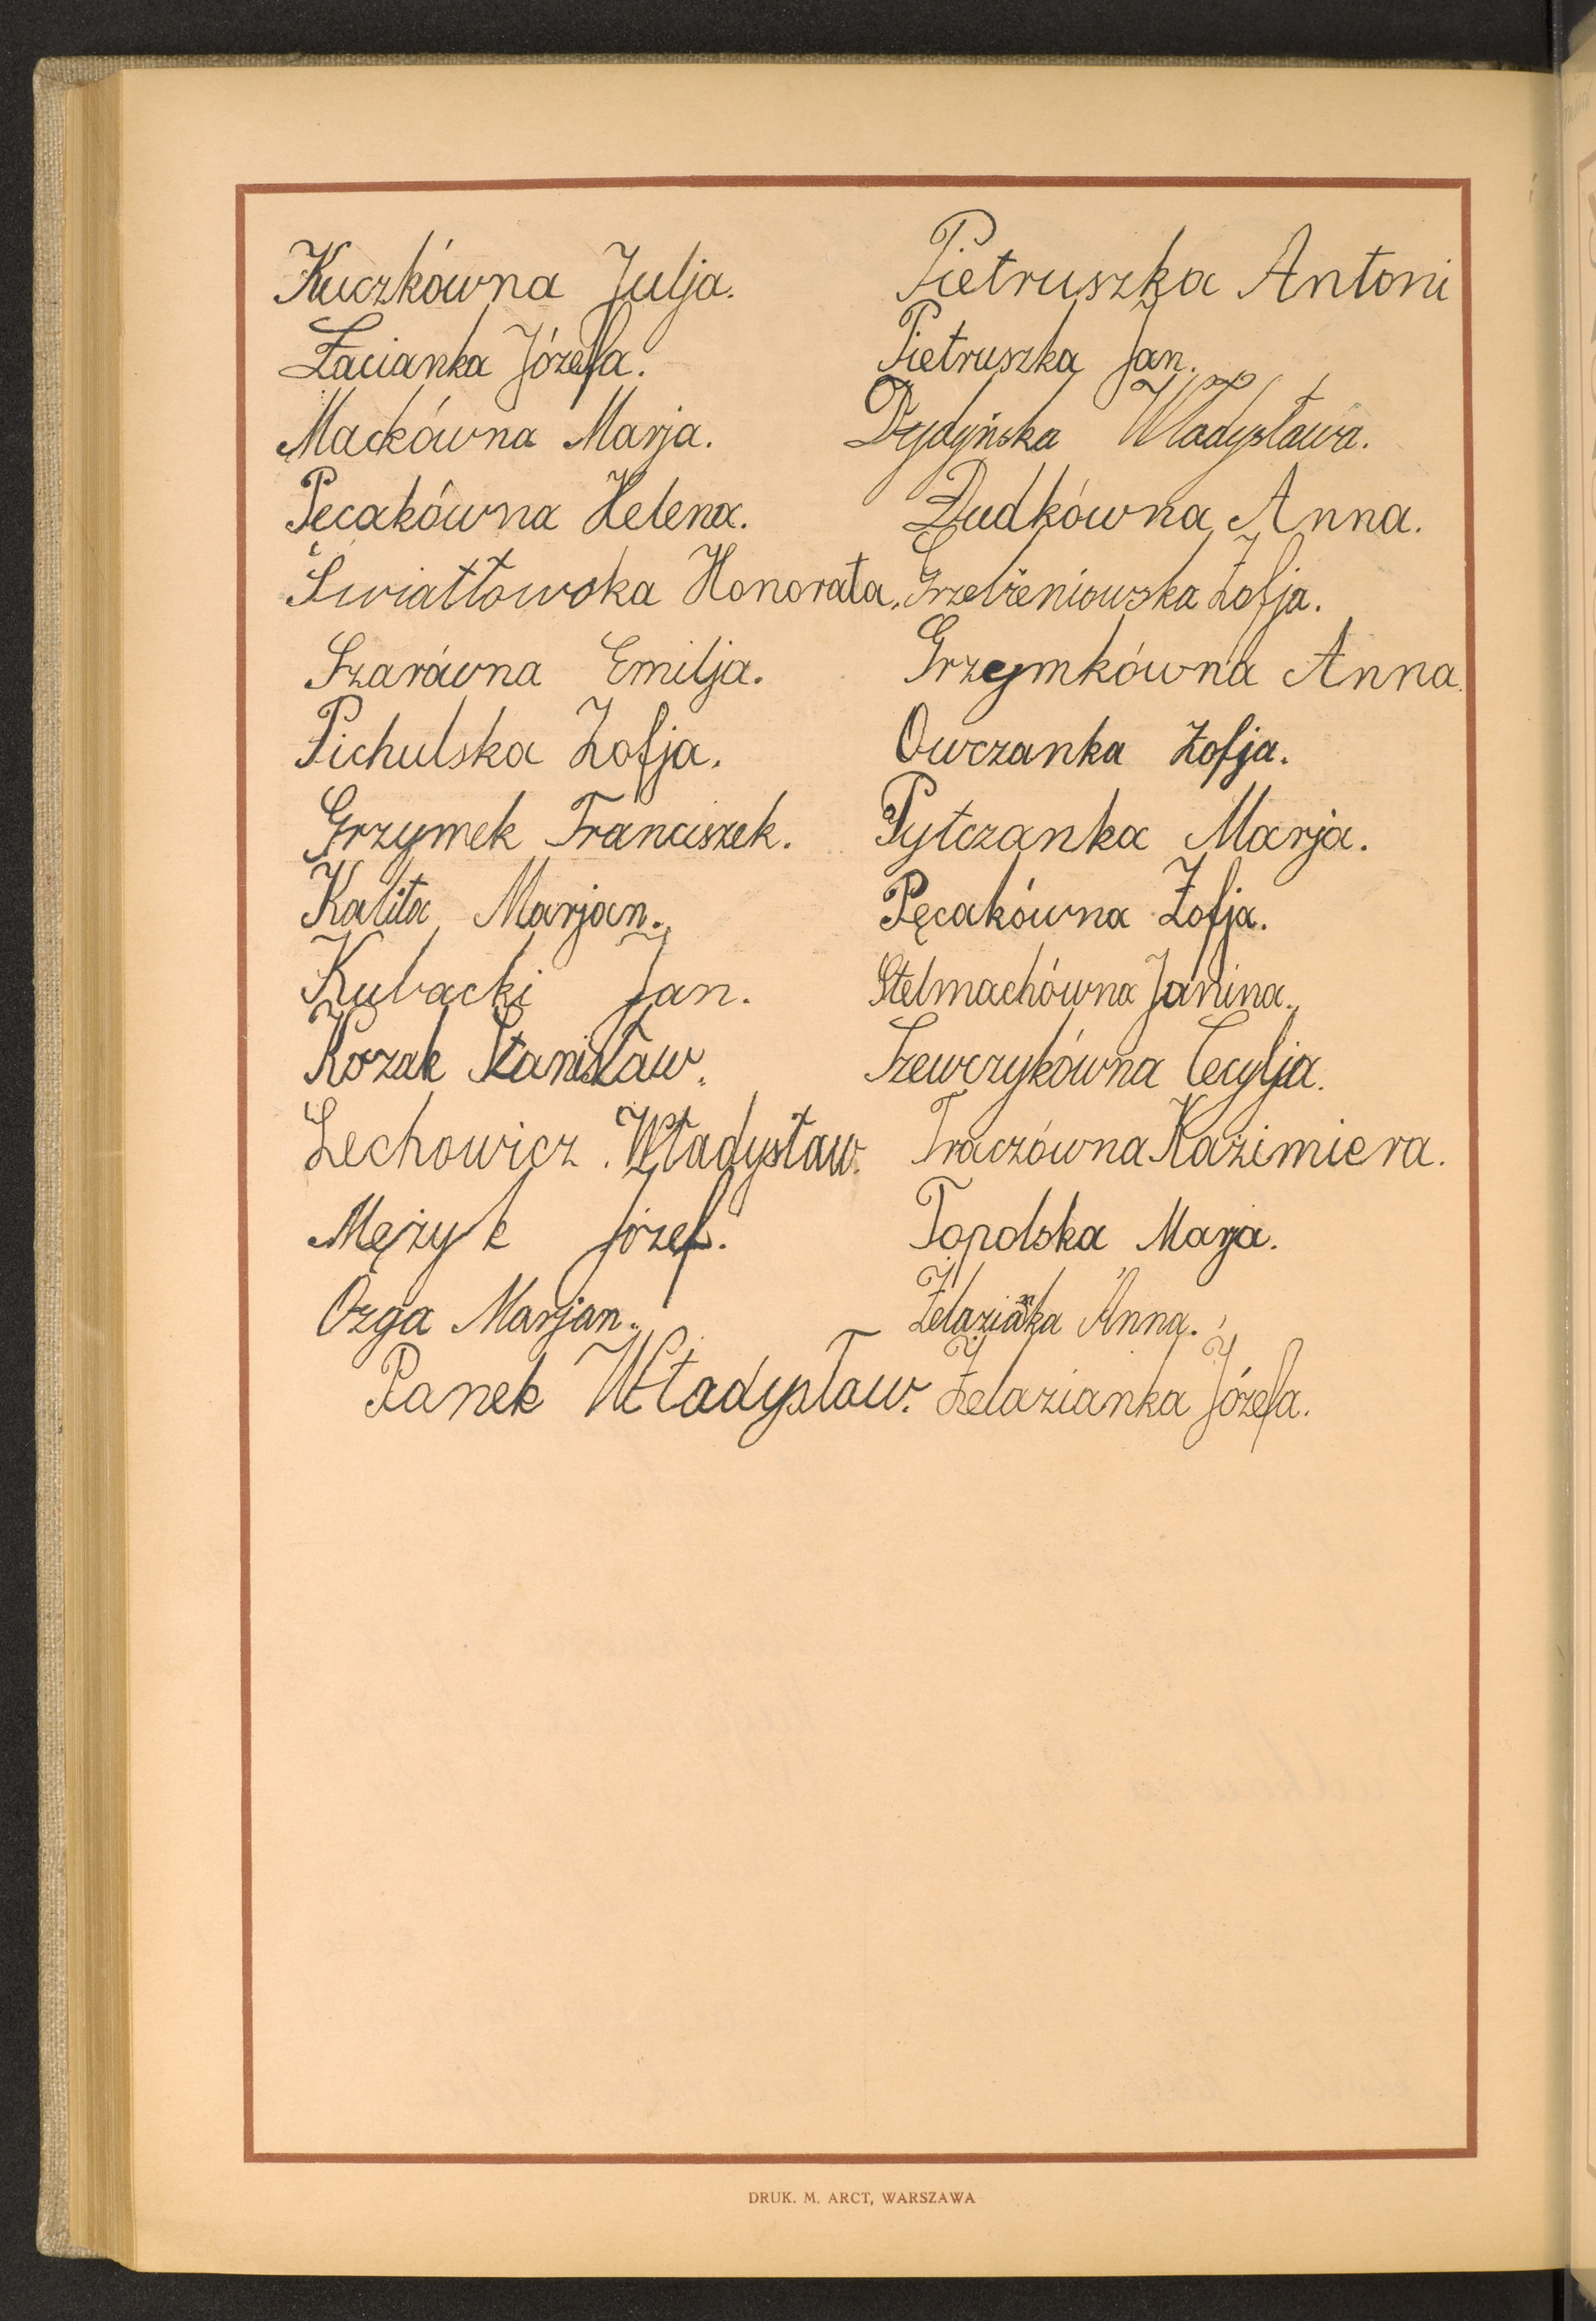 Kuczkówna Julja.
Łacianka Józefa.
Maćkówna Marja.
Pecakówna Helena.
Swiatłowska Honorata.
Szarówna Emilja.
Pichulska Zofja.
Grzymek Franciszek.
Kalita Marjan.
Kubacki Jan.
Kozak Stanisław.
Lechowicz Władysław.
Mężyk Józef.
Ozga Marjan.
Panek Władysław.
Pietruszka Antoni
Pietruszka Jan.
Dydyńska Władysława.
Dudkówna Anna.
Grzebieniowska Zofja.
Grzymkówna Anna.
Owczanka Zofja.
Pytczanka Marja.
Pęcakówna Zofja.
Stelmachówna Janina.
Szewczykówna Cecylja.
Traczówna Kazimiera.
Topolska Marja.
Żelazianka Anna.
Żelazianka Józefa.
DRUK. M. ARCT, WARSZAWA